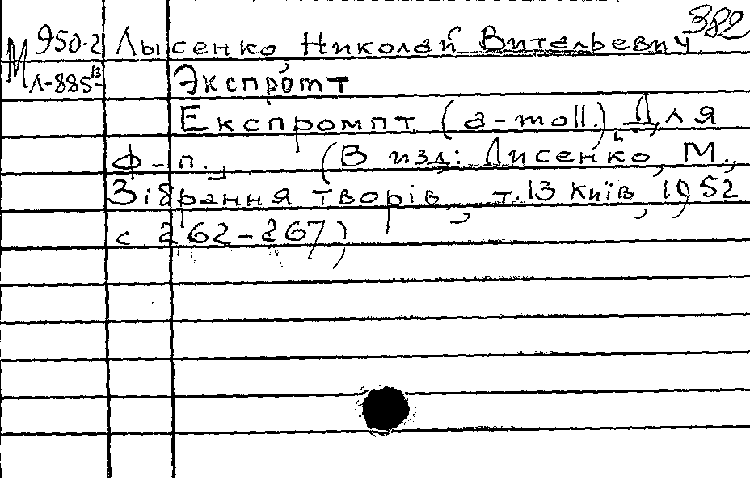 382
М 950-2 Лысенко, Николай Витальевич
Л-885 Экспромт
Експромпт (a-moll.) Для
ф-п., (В изд: Лисенко, М.,
Зібрання творів, т.13 Київ, 1952
с 262-267)